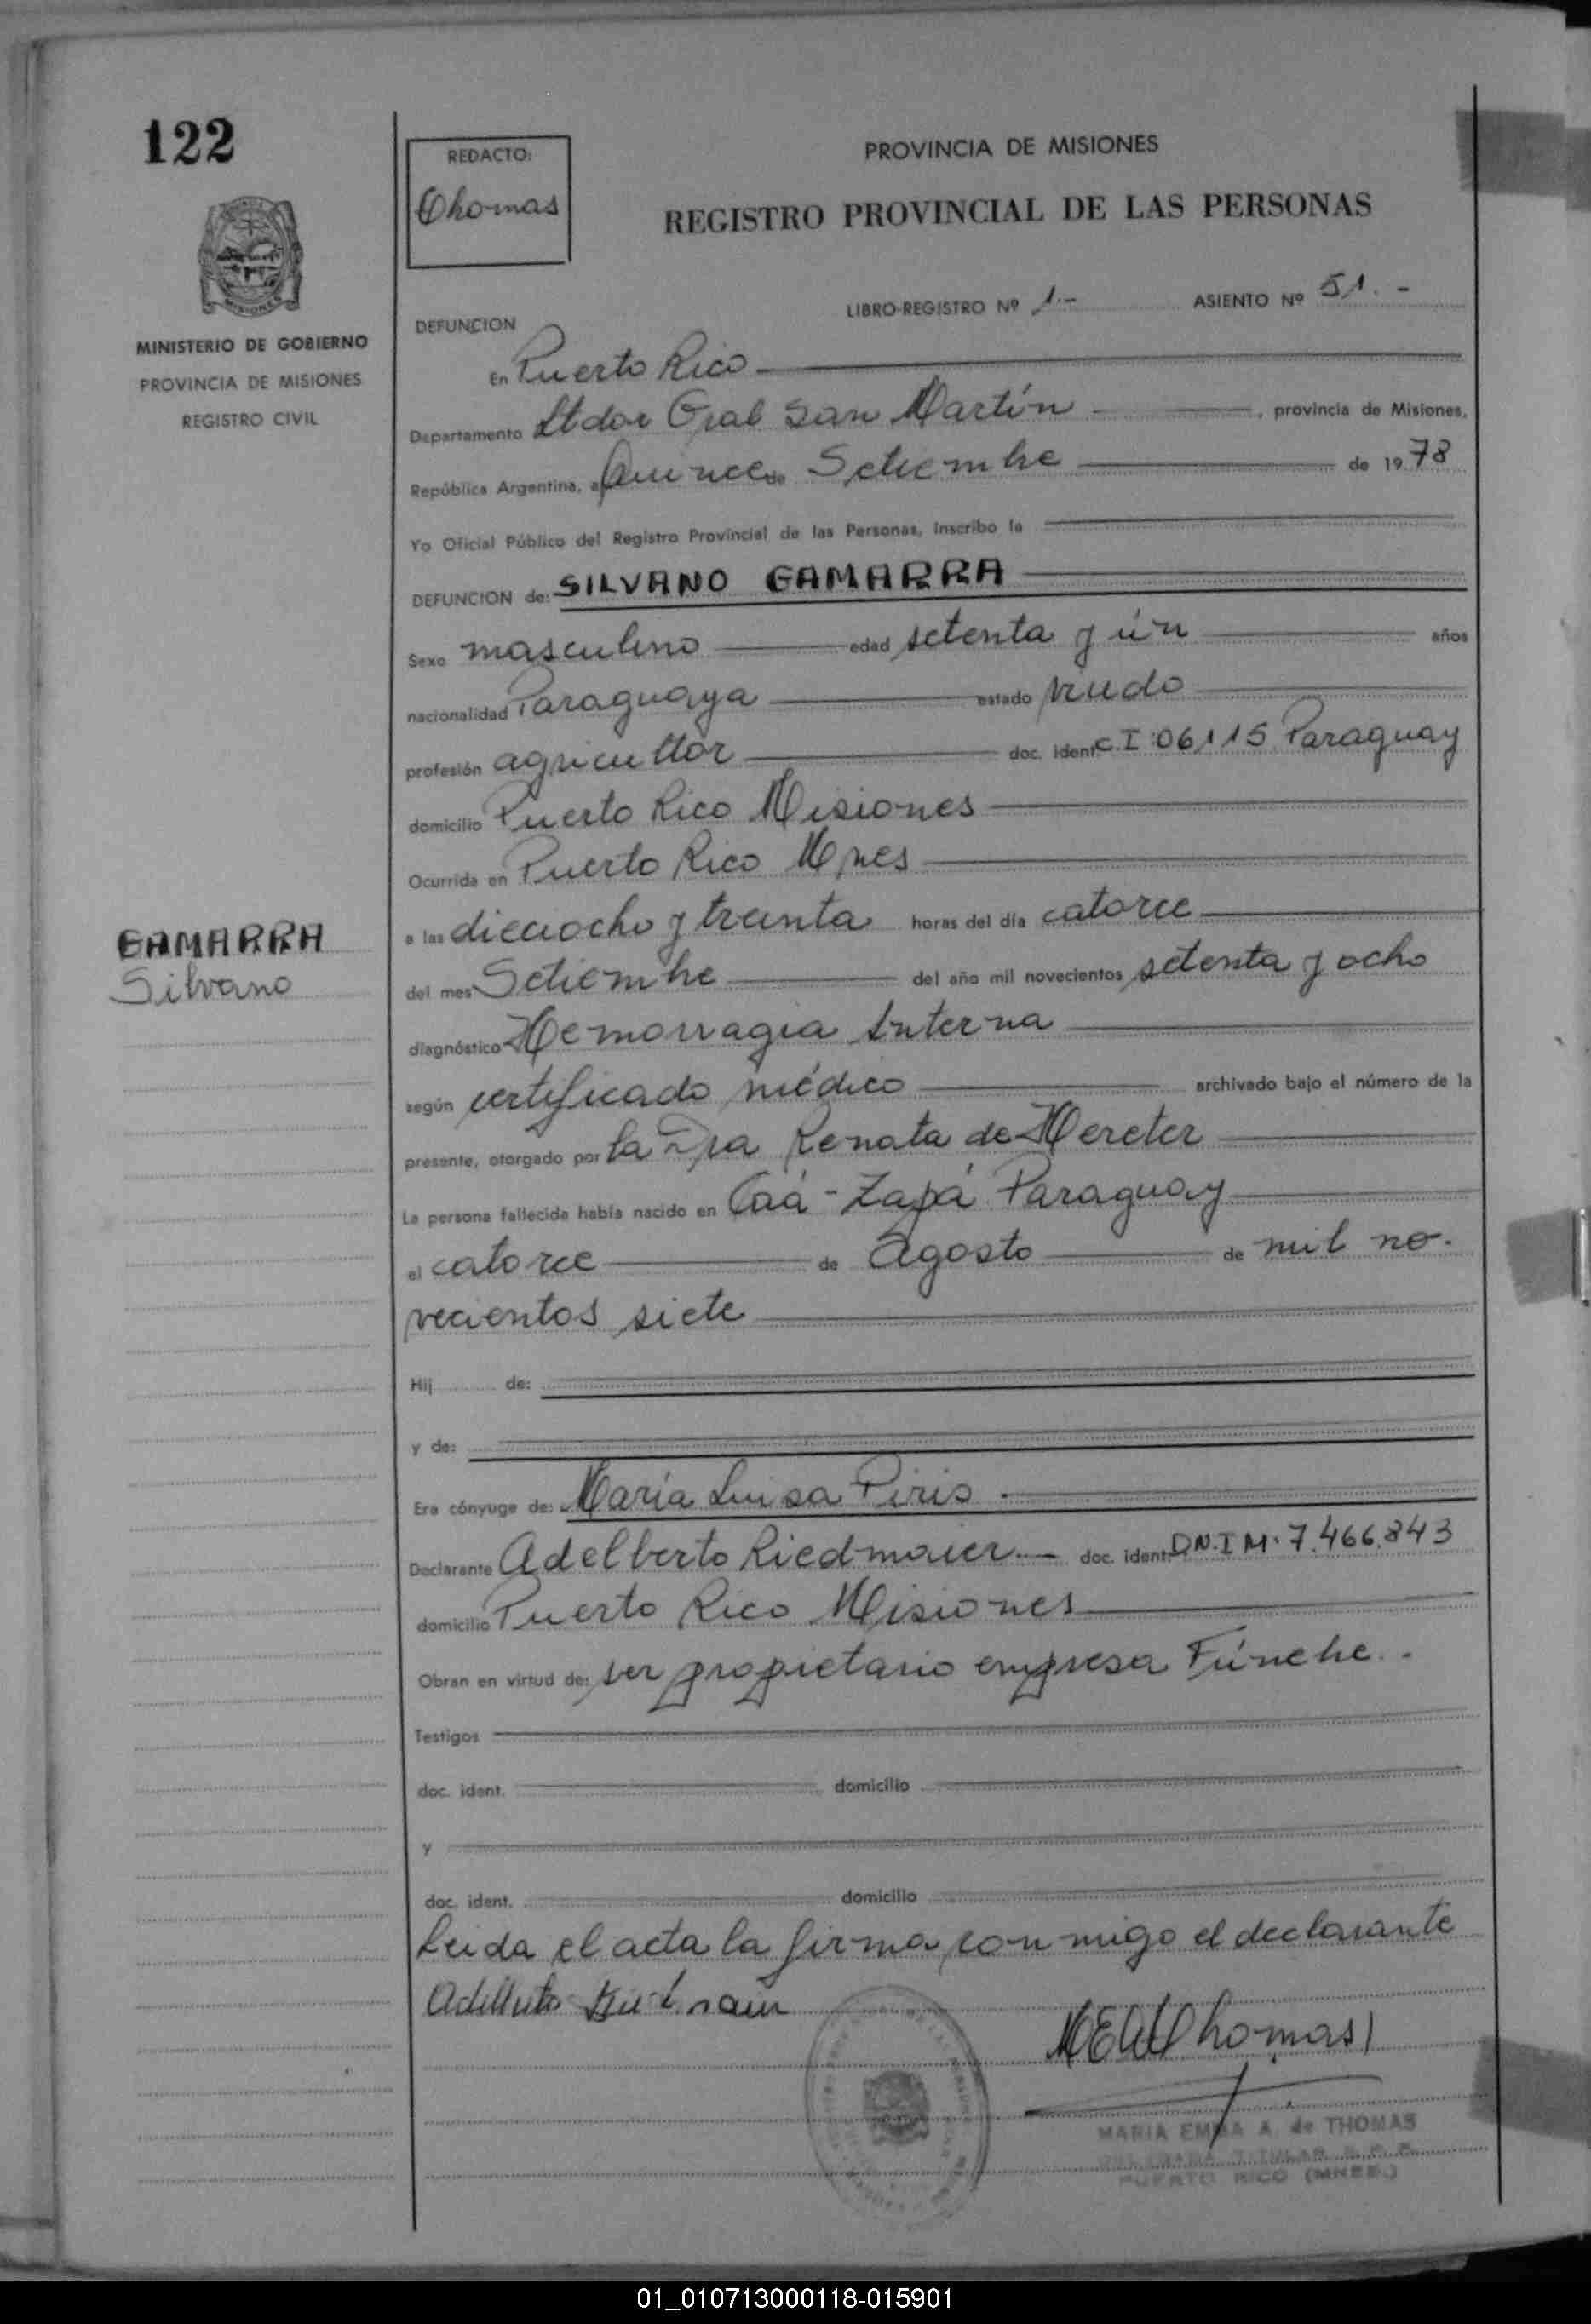 122
REDACTO:
Thomas
PROVINCIA DE MISIONES
REGISTRO PROVINCIAL DE LAS PERSONAS
MISIONES
MINISTERIO DE GOBIERNO
PROVINCIA DE MISIONES
REGISTRO CIVIL
LIBRO-REGISTRO Nº 1.- ASIENTO Nº 51.-
DEFUNCION
En Puerto Rico
Departamento Ltdor Gral San Martín , provincia de Misiones,
República Argentina, a Quince de Setiembre de 1978
Yo Oficial Público del Registro Provincial de las Personas, Inscribo la
DEFUNCION de: SILVANO GAMARRA
Sexo masculino edad setenta y ún años
nacionalidad Paraguaya estado viudo
profesión agricultor doc. ident. C.I. 06115 Paraguay
domicilio Puerto Rico Misiones
Ocurrida en Puerto Rico Mnes
a las dieciocho y treinta horas del día catorce
GAMARRA
Silvano
del mes Setiembre del año mil novecientos setenta y ocho
diagnóstico Hemorragia Interna
según certificado médico archivado bajo el número de la
presente, otorgado por la Dra Renata de Hereter
La persona fallecida había nacido en Caá-Zapá Paraguay
el catorce de Agosto de mil no-
vecientos siete
Hij de:
y de:
Era cónyuge de: María Luisa Piris.
Declarante Adelberto Riedmaier.- doc. ident. D.N.I M. 7.466.843
domicilio Puerto Rico Misiones
Obran en virtud de: ser propietario empresa Fúnebre.
Testigos
doc. ident. domicilio
y
doc. ident. domicilio
Leida el acta la firma conmigo el declarante
MEAdThomas
MARIA EMMA A. de THOMAS
DELEGADA TITULAR R. P. P.
PUERTO RICO (MNES.)
01_010713000118-015901